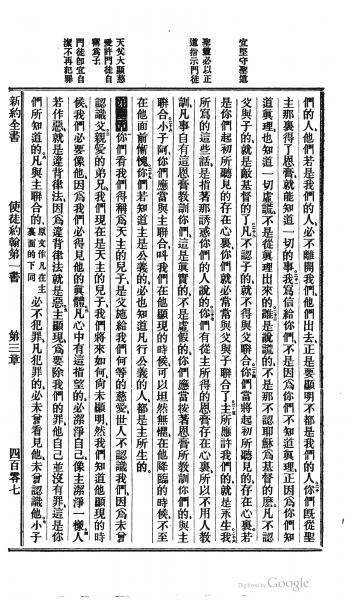 宜堅守聖道
聖靈必以正
道指示門徒
天父大顯慈
愛許門徒自
稱為子
門徒即宜自
潔不再犯罪
們的人他們若是我們的人必不離開我們他們出去正是要顯明不都是我們的人你們既從聖
主那裏得了恩膏就能知道一切的事我寫信給你們不是因為你們不知道真理正因為你們知
道真理也知道一切虛謊不是從真理出來的誰是說謊的不是那不認耶穌為基督的麼凡不認
父與子的就是敵基督的了凡不認子的就不得與父聯合你們當將起初所聽見的存在心裏若
是你們起初所聽見的存在心裏你們就必常與父與子聯合了主所應許我們的就是永生我
所寫的這些話是指著那誘惑你們的人說的你們有從主所得的恩膏存在心裏所以不用人教
訓凡事自有這恩膏教訓你們這是真實的不是虛假的你們應當按著恩膏所教訓你們的與主
聯合小子阿你們應當與主聯合叫我們在他顯現的時候可以坦然無懼在他降臨的時候不至
在他面前慚愧你們若知道主是公義的必也知道凡行公義的人都是主所生的
第三章你們看我們得稱為天主的兒子是父施給我們何等的慈愛世人不認識我們因為未曾
認識父親愛的弟兄我們現在是天主的兒子我們將來如何尚未顯明然我們知道他顯現的時
候我們必要像他因為我們必得見他的真體凡心中有這指望的必潔淨自己像主潔淨一樣人
若作惡就是違背律法因為違背律法就是惡主顯現為要除我們的罪他自己並沒有罪這是你
們所知道的凡與主聯合的原文作凡在主裏面的下同必不犯罪凡犯罪的必未曾看見他未曾認識他小子
新約全書 使徒約翰第一書 第三章 四百零七
Digitized by Google